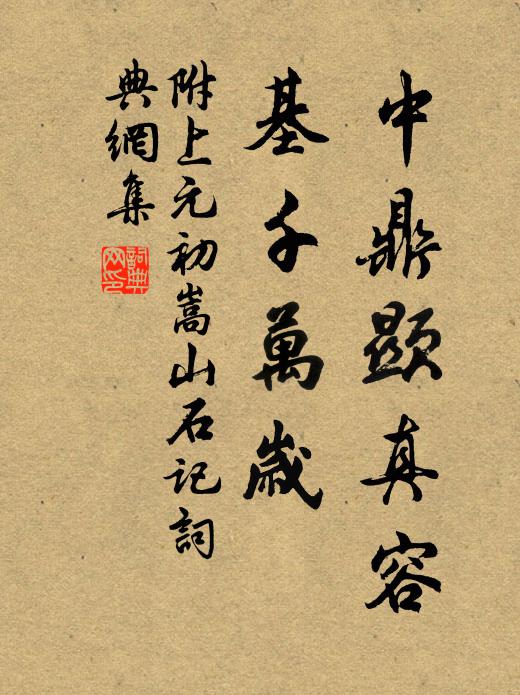 中鼎顯真容
基千萬歲
附上元初嵩山石記詞
典網集
詞典网印